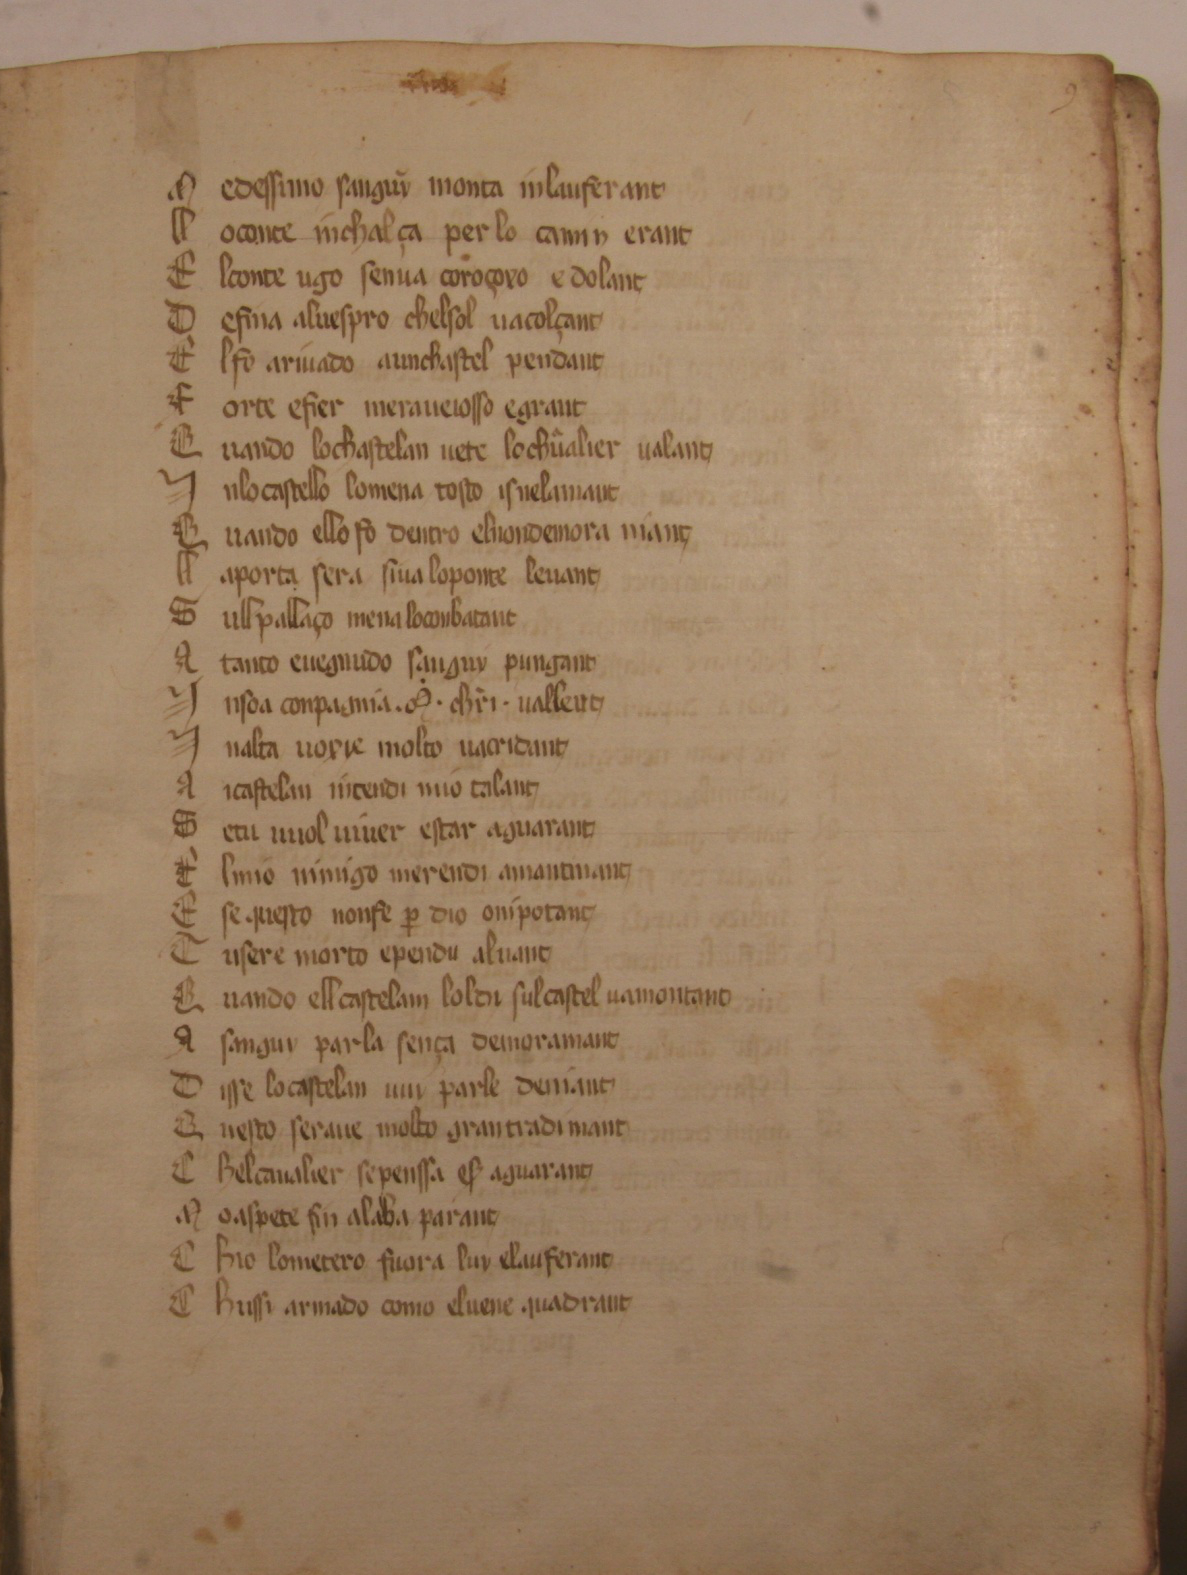 9
M edessimo sanguȳ monta inlauferant
ll oconte inchalça per lo camin erant
E lconte ugo senua coroçoxo e dolant
D efina aluespro chelsol uacolçant
E lfo ariuado aunchastel pendant
F orte efier meraueiosso egrant
Q uando lochastelan uete lochūalier ualant
I nlocastello lomena tosto isnelamant
Q uando ello fo dentro elnondemora niant
ll aporta sera siua loponte leuant
S ull pallaço mena loconbatant
A tanto euegnudo sanguy pungant
I nsoa conpagnia chr̄i uallent
I nalta uoxie molto uacridant
A icastelan intendi mio talant
S etu uuol uiuer estar aguarant
E lmio inimigo merendi amantinant
E se questo nonfe p̱ dio onipotant
T usere morto ependu aluant
Q uando ell castelam loldi sulcastel uamontant
A sanguy parla sença demoramant
D isse locastelan uuy parle deniant
Q uesto seraue molto grantradimant
C helcaualier sepenssa esser aguarant
M oaspete fin alalba parant
C hio lometero fuora luy elauferant
C hussi armado como eluene quadrant